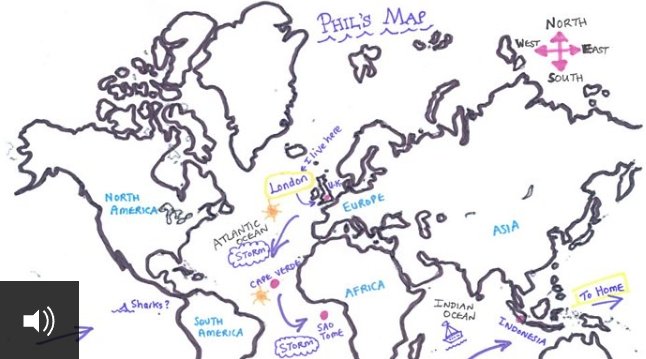 PHIL'S MAP
NORTH
WEST
EAST
SOUTH
I live here
London
U.K
NORTH
AMERICA
EUROPE
ATLANTIC
OCEAN
ASIA
STORM
CAPE VERDE
AFRICA
To HOME
Sharks?
INDIAN
OCEAN
SOUTH
AMERICA
SAO
TOME
STORM
INDONESIA